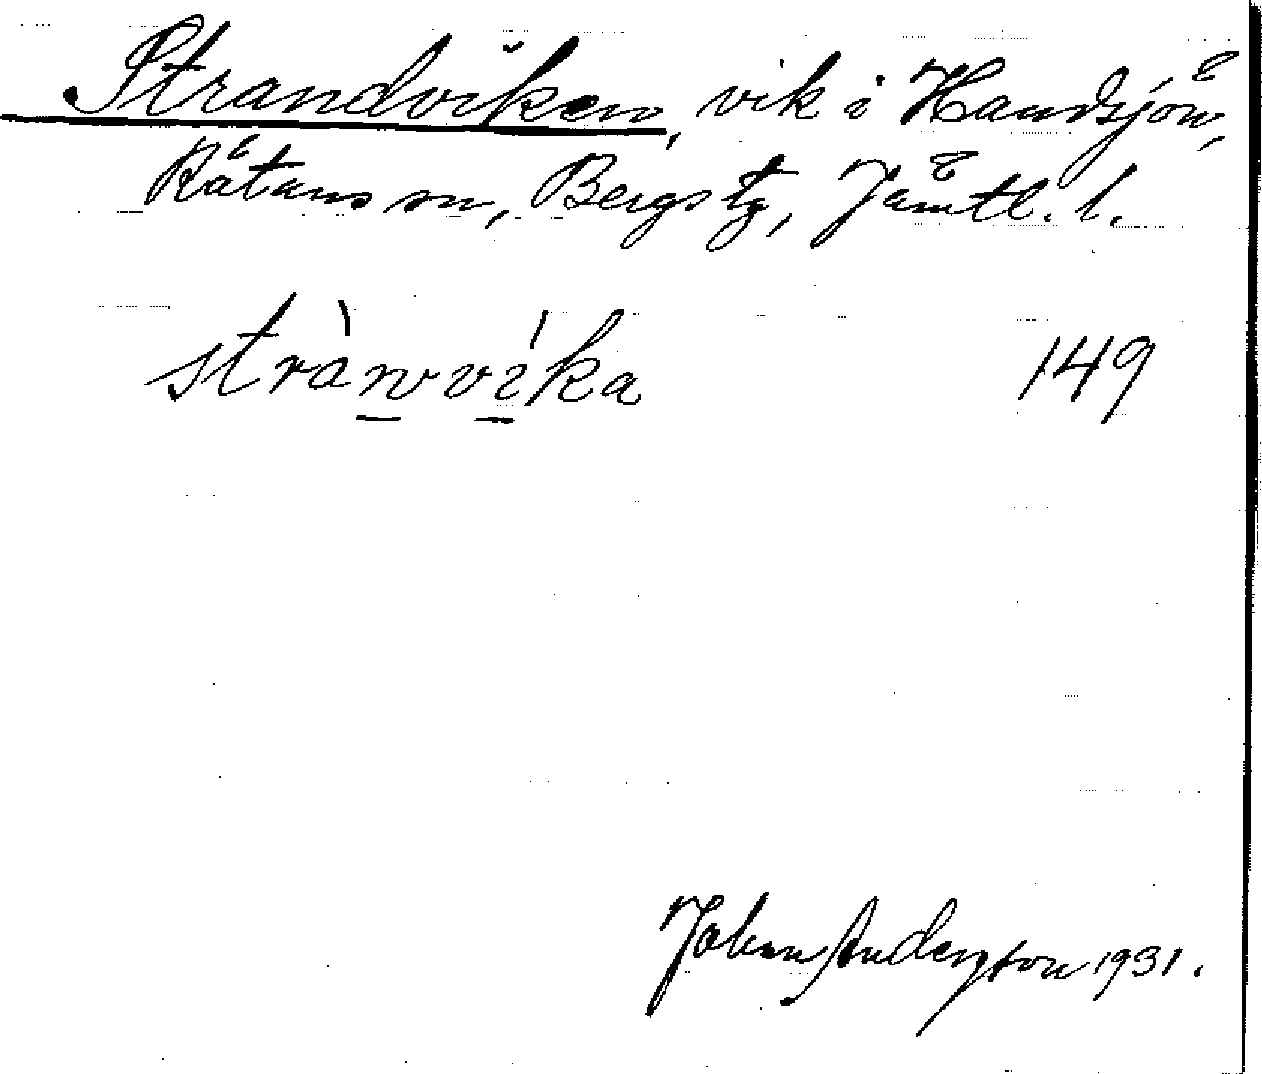 Strandviken, vik i Handsjön,
Rätans sn, Bergs tg, Jämtl. l.
strànvíka 149
Johan Anderzson 1931.